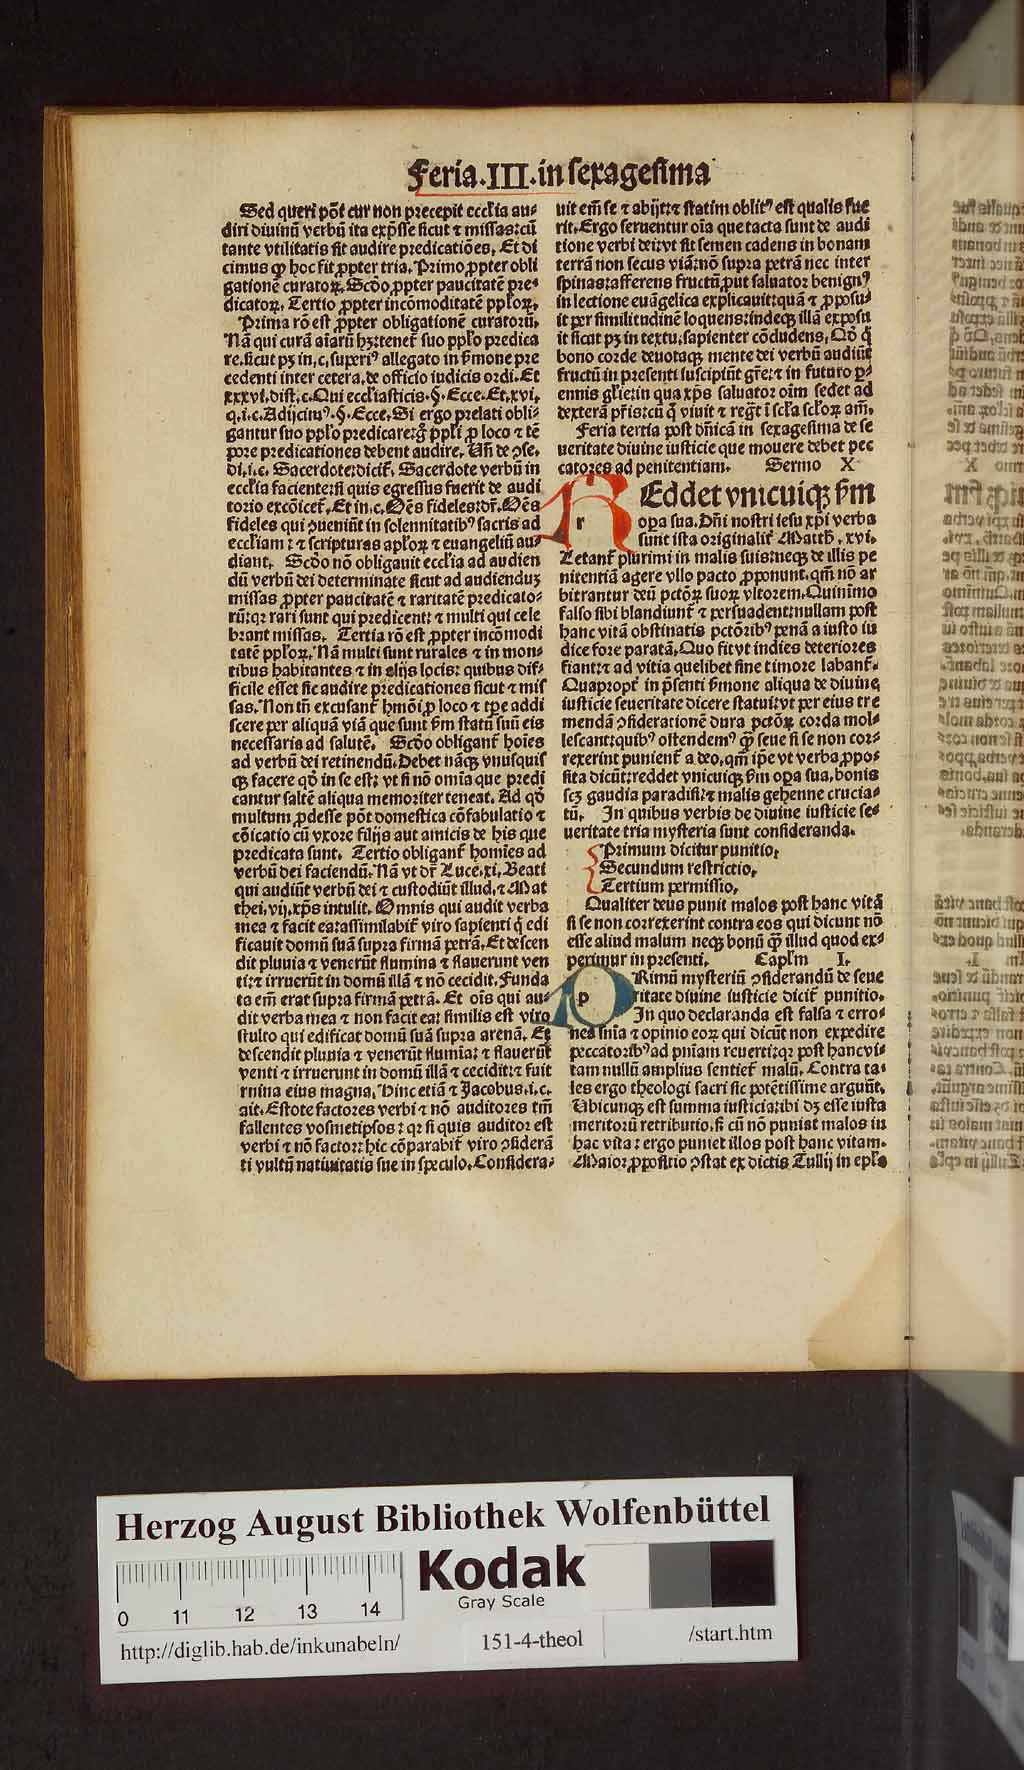 Feria.III.in sexagesima
Sed queri põt cur non precepit eccľia au-
diri diuinũ verbũ ita exp̃sse sicut ⁊ missas: cũ
tante vtilitatis sit audire predicatiões. Et di
cimus ꝙ hoc fit ꝓpter tria. Primo ꝓpter obli
gationẽ curatoꝝ. Scďo ꝓpter paucitatẽ pre-
dicatoꝝ. Tertio ꝓpter incõmoditatẽ pplo̧ꝝ.
Prima rõ est ꝓpter obligationẽ curatorũ.
Nã qui curã aĩarũ hꝫ: tenet᷑ suo pplo̧ predica
re. sicut pꝫ in .c. superi⁹ allegato in ẜmone pre
cedenti inter cetera. de officio iudicis ordi. Et
xxxvi. dist. c. Qui eccľiasticis. §. Ecce. Et. xvi.
q. i. c. Adijcim⁹. §. Ecce. Si ergo prelati obli-
gantur suo pplo̧ predicare: g̊ ppľi ꝓ loco ⁊ tẽ
pore predicationes debent audire. Vñ de ↄse.
di. i. c. Sacerdote: dicit᷑. Sacerdote verbũ in
eccľia faciente: si quis egressus fuerit de audi
torio excõicet᷑. Et in. c. Oẽs fideles: dr̃. Oẽs
fideles qui ↄueniũt in solennitatib⁹ sacris ad
eccľiam: ⁊ scripturas apľoꝝ ⁊ euangeliũ au-
diant. Scďo nõ obligauit eccľia ad audien
dũ verbũ dei determinate sicut ad audienduꝫ
missas ꝓpter paucitatẽ ⁊ raritatẽ predicato-
rũ: qꝛ rari sunt qui predicent: ⁊ multi qui cele
brant missas. Tertia rõ est ꝓpter incõmodi
tatẽ pploꝝ. Nã multi sunt rurales ⁊ in mon-
tibus habitantes ⁊ in alijs locis: quibus dif-
ficile esset sic audire predicationes sicut ⁊ mis
sas. Non tñ excusant᷑ hmõi ꝓ loco ⁊ tꝑe addi
scere per aliquã viã que sunt ẜm statũ suũ eis
necessaris ad salutẽ. Scďo obligant᷑ hoĩes
ad verbũ dei retinendũ. Debet nãqꝫ vnusquis
qꝫ facere qď in se est: vt si nõ omĩa que predi
cantur saltẽ aliqua memoriter teneat. Ad qď
multum ꝓdesse põt domestica cõfabulatio ⁊
cõicatio cũ vxore filijs aut amicis de his que
predicata sunt. Tertio obligant᷑ homĩes ad
verbũ dei faciendũ. Nã vt dr̃ Luce. xi. Beati
qui audiũt verbũ dei ⁊ custodiũt illud. ⁊ Mat
thei. vij. xp̃s intulit. Omnis qui audit verba
mea ⁊ facit ea: assimilabit᷑ viro sapienti q̇ edi
ficauit domũ suã supra firmã petrã. Et descen
dit pluuia ⁊ venerũt flumina ⁊ flauerunt ven
ti: ⁊ irruerũt in domũ illã ⁊ nõ cecidit. Funda
ta em̃ erat supra firmã petrã. Et oĩs qui au-
dit verba mea ⁊ non facit ea: similis est viro
stulto qui edificat domũ suã supra arenã. Et
descendit pluuia ⁊ venerũt flumia: ⁊ flauerũt
venti ⁊ irruerunt in domũ illã ⁊ cecidit: ⁊ fuit
ruina eius magna. Hinc etiã ⁊ Jacobus. i. c.
ait. Estote factores verbi ⁊ nõ auditores tm̃
fallentes vosmetipsos: qꝛ si quis auditor est
verbi ⁊ nõ factor: hic cõparabit᷑ viro ↄsiderã
ti vultũ natiuitatis sue in speculo. Considera-
uit em̃ se ⁊ abijt: ⁊ statim oblit⁹ est qualis fue
rit. Ergo seruentur oĩa que tacta sunt de audi
tione verbi dei: vt sit semen cadens in bonam
terrã non secus viã: nõ supra petrã nec inter
spinas: afferens fructũ ꝓut saluator benign⁹
in lectione euãgelica explicauit: quã ⁊ ꝓposu-
it per similitudinẽ loquens: indeqꝫ illã exposu
it sicut pꝫ in textu. sapienter cõcludens. Qď q̇
bono corde deuotaqꝫ mente dei verbũ audiũt
fructũ in presenti suscipiũt gr̃e: ⁊ in futuro ꝑ-
ennis gľie: in qua xp̃s saluator oĩm sedet ad
dexterã pr̃is: cũ q̊ viuit ⁊ regt̃ ĩ scľa scľoꝝ am̃.
Feria tertia post dñicã in sexagesima de se
ueritate diuine iusticie que mouere debet pec
catores ad penitentiam. Sermo X
REddet vnicuiqꝫ ẜm
r
opa sua. Dñi nostri iesu xp̃i verba
sunt ista originalit᷑ Matth. xvi.
Letant᷑ plurimi in malis suis: neqꝫ de illis pe
nitentiã agere vllo pacto ꝓponunt. qm̃ nõ ar
bitrantur deũ pctõꝝ suoꝝ vltorem. Quinimo
falso sibi blandiunt᷑ ⁊ persuadent: nullam post
hanc vitã obstinatis pctõrib⁹ penã a iusto iu
dice fore paratã. Quo fit vt indies deteriores
fiant: ⁊ ad vitia quelibet sine timore labant᷑.
Quapropt᷑ in p̃senti ẜmone aliqua de diuine
iusticie seueritate dicere statui: vt per eius tre
mendã ↄsiderationẽ dura pctõꝝ corda mol-
lescant: quib⁹ ostendem⁹ ꝙ̃ seue si se non cor-
rexerint punient᷑ a deo. qm̃ ip̃e vt verba ꝓpo-
sita dicũt: reddet vnicuiqꝫ ẜm opa sua. bonis
scꝫ gaudia paradisi: ⁊ malis gehenne crucia-
tũ. In quibus verbis de diuine iusticie se-
ueritate tria mysteria sunt consideranda.
Primum dicitur punitio.
Secundum restrictio.
Tertium permissio.
Qualiter deus punit malos post hanc vitã
si se non correxerint contra eos qui dicunt nõ
esse aliud malum neqꝫ bonũ ꝙ̃ illud quod ex-
perimur in presenti. Capľm I.
PRimũ mysteriũ ↄsiderandũ de seue
p
ritate diuine iusticie dicit᷑ punitio.
In quo declaranda est falsa ⁊ erro-
nea sñia ⁊ opinio eoꝝ qui dicũt non expedire
peccatorib⁹ ad pñiam reuerti: qꝛ post hanc vi-
tam nullũ amplius sentiet᷑ malũ. Contra ta-
les ergo theologi sacri sic potẽtissime arguũt.
Vbicunqꝫ est summa iusticia: ibi dꝫ esse iusta
meritorũ retributio. ẜ cũ nõ puniat malos in
hac vita: ergo puniet illos post hanc vitam.
Maior ꝓpositio ↄstat ex dictis Tullij in epľa
Herzog August Bibliothek Wolfenbüttel
Kodak
Gray Scale
0 11 12 13 14
http://diglib.hab.de/inkunabeln/
151-4-theol
/start.htm